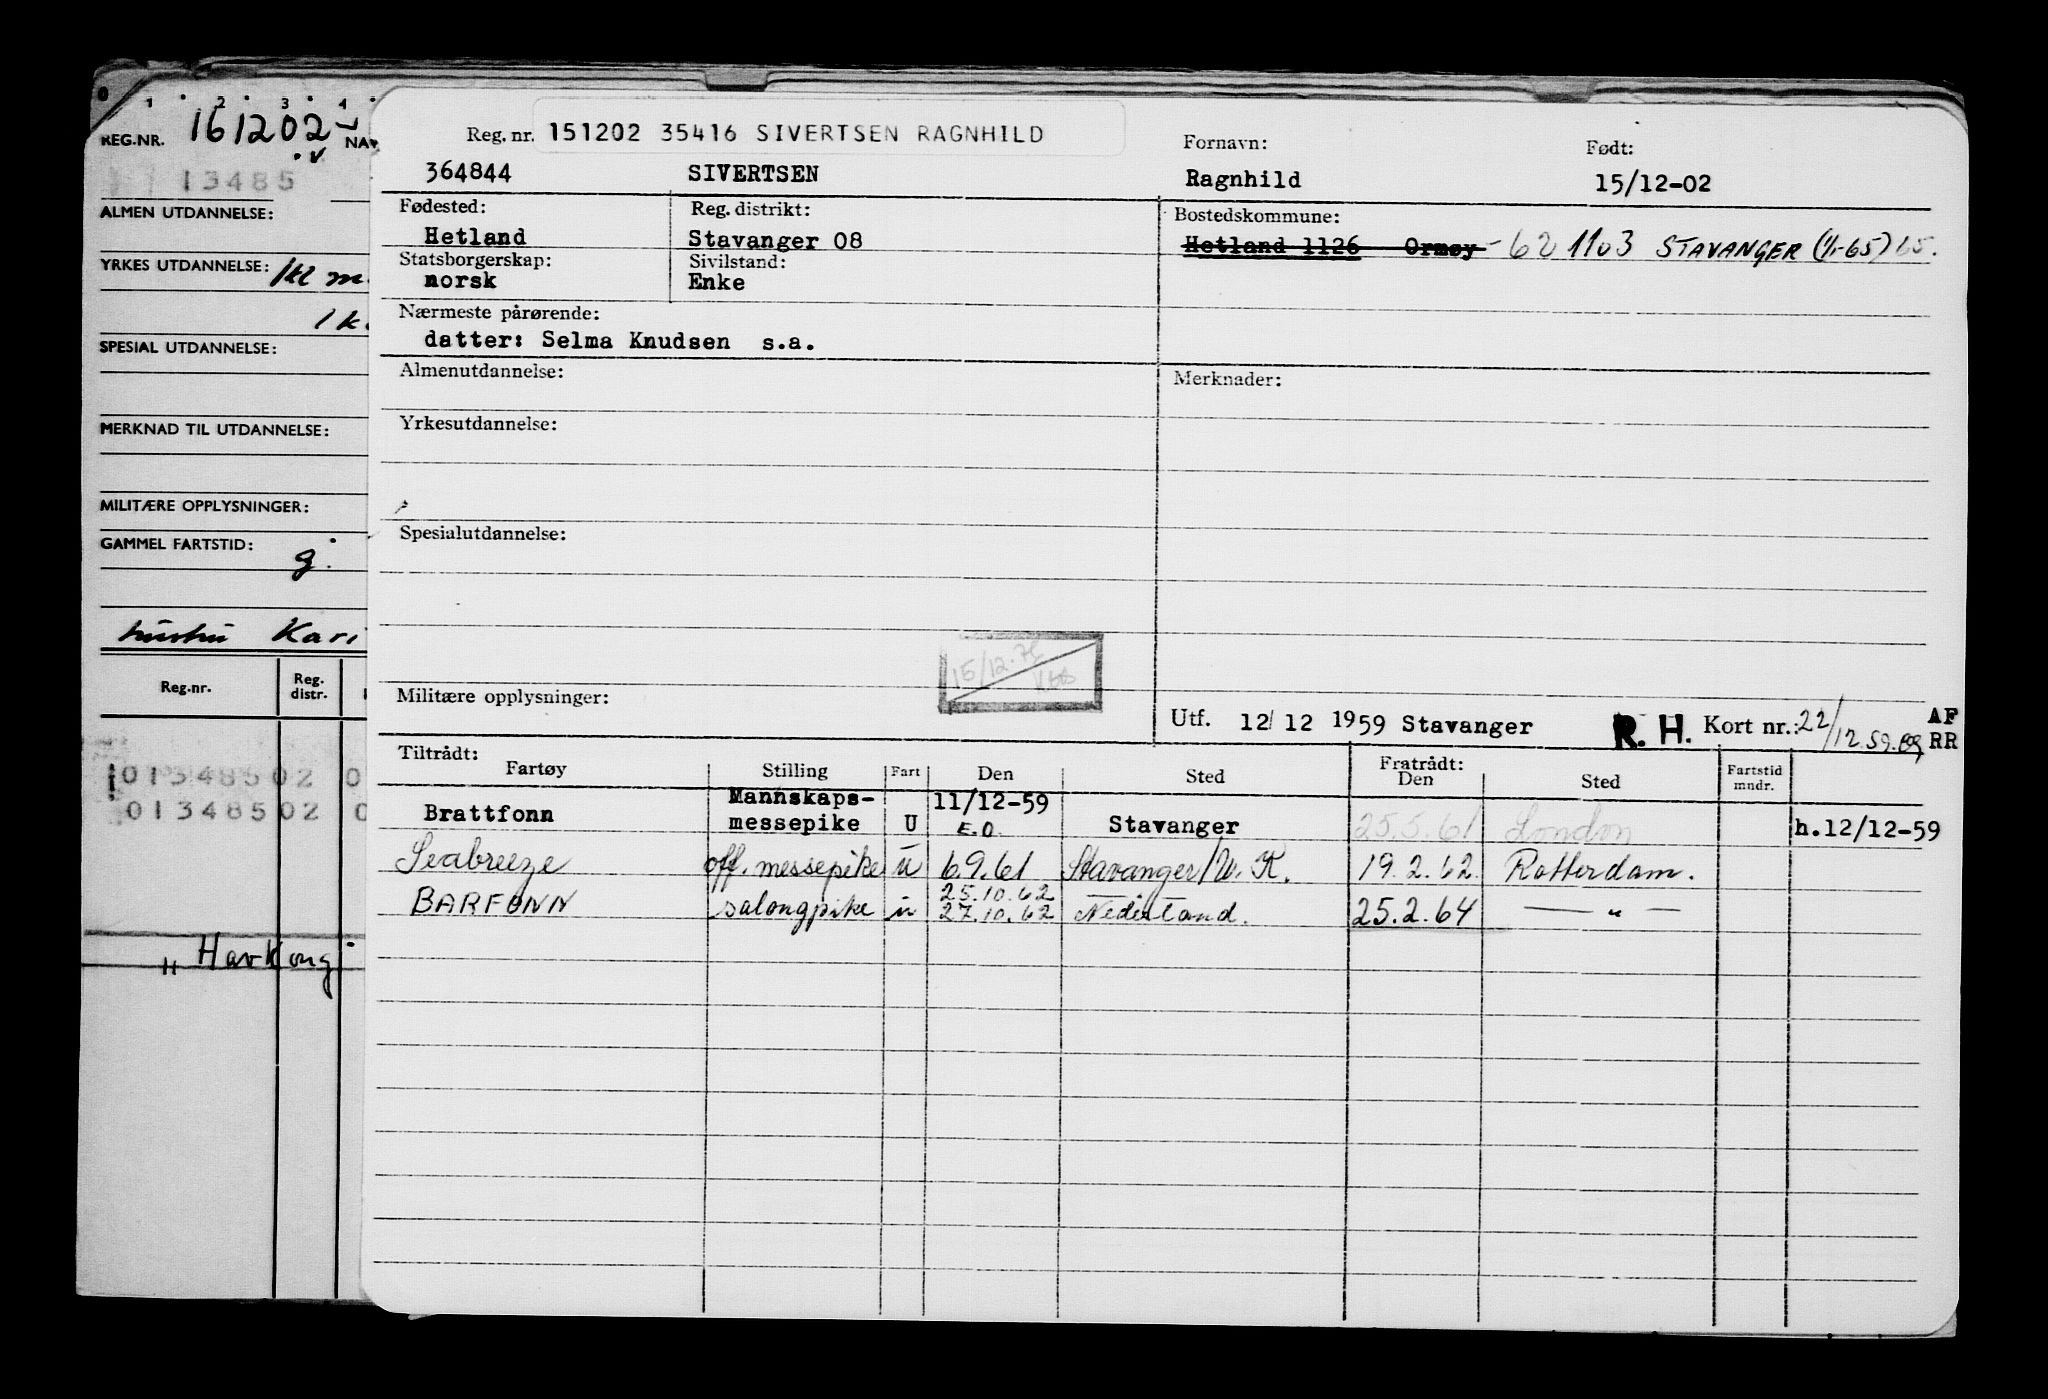 0 1 2 3 4
REG.NR. 161202 NAV
13485
ALMEN UTDANNELSE:
YRKES UTDANNELSE: 1kl m.
1 k.
SPESIAL UTDANNELSE:
MERKNAD TIL UTDANNELSE:
MILITÆRE OPPLYSNINGER:
GAMMEL FARTSTID: g.
hustru Kari
Reg.nr. Reg. distr.
01348502 0
01348502 0
" Havkong
Reg. nr. 151202 35416 SIVERTSEN RAGNHILD Fornavn: Født:
364844 SIVERTSEN Ragnhild 15/12-02
Fødested: Reg. distrikt: Bostedskommune:
Hetland Stavanger 08 Hetland 1126 Ormøy - 62 1103 STAVANGER (1/1-65) 65.
Statsborgerskap: Sivilstand:
norsk Enke
Nærmeste pårørende:
datter: Selma Knudsen s.a.
Almenutdannelse: Merknader:
Yrkesutdannelse:
Spesialutdannelse:
15/12.72
Militære opplysninger:
Utf. 12/ 12 1959 Stavanger R. H. Kort nr.: 22/12.59. AF
RR
Tiltrådt: Fratrådt:
Fartøy Stilling Fart Den Sted Den Sted Fartstid mndr.
Brattfonn Mannskaps-messepike U 11/12-59 E.O. Stavanger 25.5.61 London h.12/12-59
Seabreeze off. messepike u 6.9.61 Stavanger/W. K. 19.2.62 Rotterdam.
BARFONN salongpike u 25.10.62 27.10.62 Nederland. 25.2.64 — " —